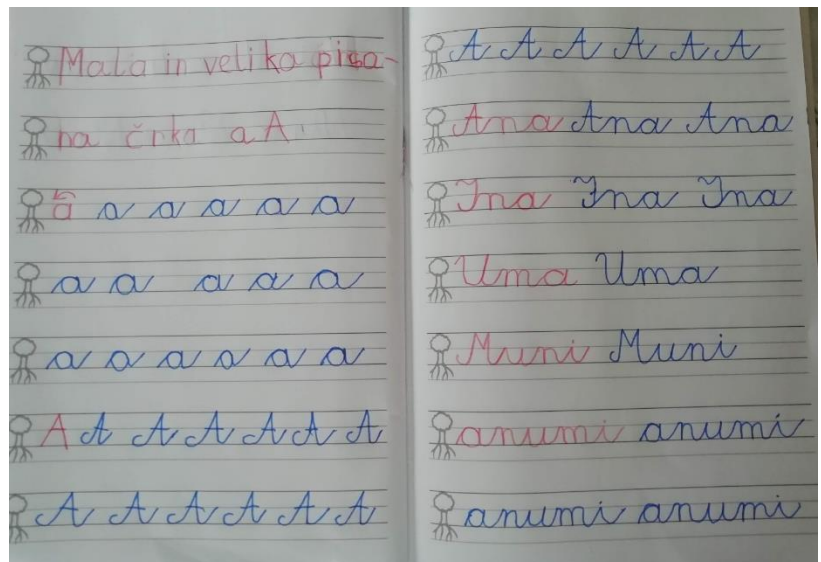 Mala in velika pisa-
na črka a A.
a a a a a a
a a a a a
a a a a a a
A A A A A A A
A A A A A A
A A A A A A
Ana Ana Ana
Ina Ina Ina
Uma Uma
Muni Muni
anumi anumi
anumi anumi